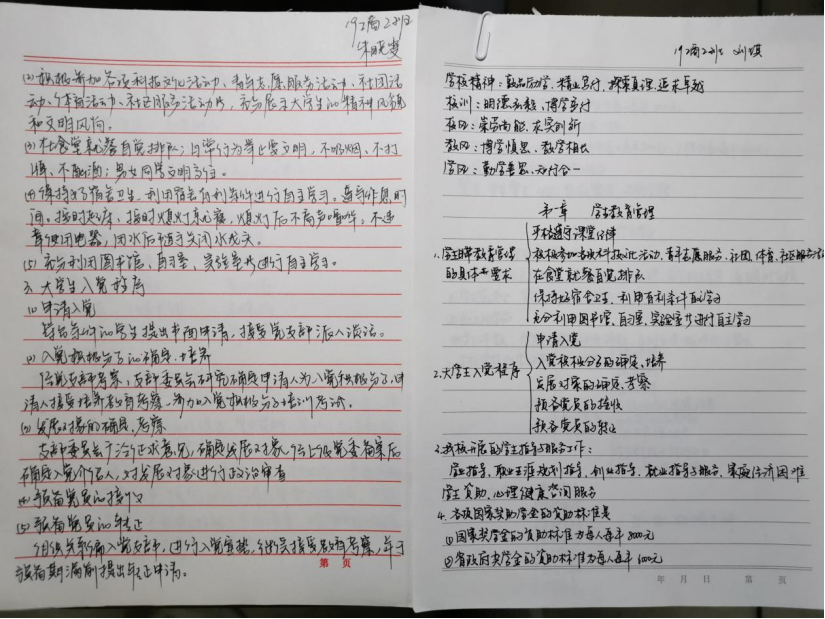 192商2班
朱晓雯
(2)积极参加各项科技文化活动、青年志愿服务活动、社团活
动、体育活动、社区服务活动等,充分展示大学生的精神风貌
和文明风尚。
(3)在食堂就餐自觉排队;日常行为举止要文明,不吸烟、不打
牌、不酗酒;男女同学文明交往。
(4)保持好宿舍卫生,利用宿舍有利条件进行自主学习。遵守作息时
间。按时起床、按时熄灯就寝,熄灯后不高声喧哗。不违
章使用电器,用水后随手关闭水龙头。
(5)充分利用图书馆、自习室、实验室等进行自主学习。
3.大学生入党程序
(1)申请入党
符合条件的学生提出书面申请,接受党支部派人谈话。
(2)入党积极分子的确定、培养
经党支部考察,支部委员会研究确定申请人为入党积极分子,申
请人接受培养教育考察,参加入党积极分子培训考试。
(3)发展对象的确定、考察
支部委员会广泛征求意见,确定发展对象,经上级党委备案后
确定入党介绍人,对发展对象进行政治审查
(4)预备党员的接收
(5)预备党员的转正
组织关系编入党支部,进行入党宣誓,继续接受教育考察,并于
预备期满前提出转正申请。
第 页
192商2班 刘琪
学校精神:敦品励学、精业笃行、探索真理、追求卓越
校训:明德弘毅、博学笃行
校风:崇尚尚能、求实创新
教风:博学慎思、教学相长
学风:勤学善思、知行合一
第一章 学生教育管理
严格遵守课堂纪律
1.学生日常教育管理 积极参加各项科技文化活动、青年志愿服务、社团、体育、社区服务活
的具体要求 在食堂就餐自觉排队
保持好宿舍卫生、利用有利条件自主学习
充分利用图书馆、自习室、实验室等进行自主学习
申请入党
2.大学生入党程序 入党积极分子的确定、培养
发展对象的确定、考察
预备党员的接收
预备党员的转正
3.我校开展的学生指导与服务工作:
学业指导、职业生涯规划指导、创业指导、就业指导与服务、家庭经济困难
学生资助、心理健康咨询服务
4.各级国家奖助学金的资助标准是
①国家奖学金的资助标准为每人每年8000元
②省政府奖学金的资助标准为每人每年6000元
年 月 日 第 页